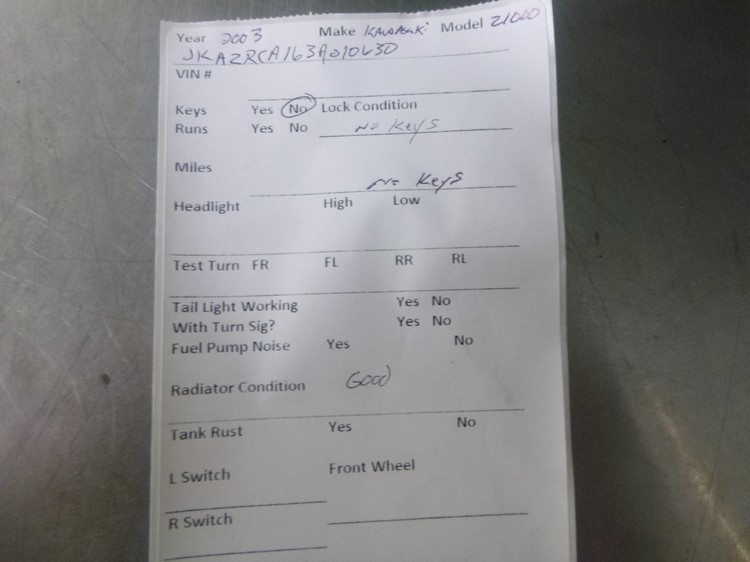 Year 2003 Make Kawasaki Model Z1000
JKAZRCA163A010630
VIN #
Keys Yes No Lock Condition
Runs Yes No No Keys
Miles No Keys
Headlight High Low
Test Turn FR FL RR RL
Tail Light Working Yes No
With Turn Sig? Yes No
Fuel Pump Noise Yes No
Radiator Condition Good
Tank Rust Yes No
L Switch Front Wheel
R Switch